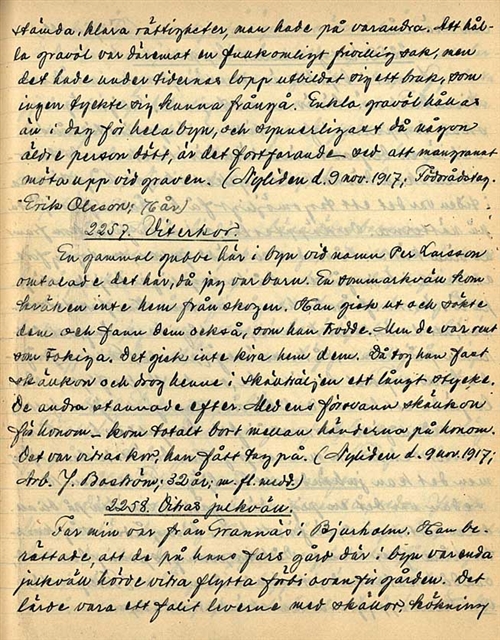 stämda, klara rättigheter, man hade på varandra. Att hål-
la gravöl var däremot en fullkomligt frivillig sak, men
det hade under tidernas lopp utbildat sig ett bruk, som
ingen tyckte sig kunna frångå. Enkla gravöl hållas
än i dag för hela byn, och synnerligast då någon
äldre person dött, är det fortfarande sed att mangrant
möta upp vid graven. (Nyliden d. 9 nov. 1917;
Erik Olsson; år)
2257. Viterkor.
En gammal gubbe här i byn vid namn Per Larsson
omtalade det här, då jag var barn. En sommarkväll kom
kräken inte hem från skogen. Han gick ut och sökte
dem och fann dem också, som han trodde. Men de var rent
som tokiga. Det gick inte köra hem dem. Då tog han fatt
skällkon och drog henne i skällväljen ett långt stycke.
De andra stannade efter. Med ens försvann skällkon
för honom – kom totalt bort mellan händerna på honom.
Det var vitras kor, han fått tag på. (Nyliden d. 9 nov. 1917;
Arb. J. Boström; 32 år; m. fl. medd.)
2258. Vitras julkväll.
Far min var från Grannäs i Bjurholm. Han be-
rättade, att de på hans fars gård där i byn varenda
julkväll hörde vitra flytta förbi ovanför gården. Det
lärde vara ett faligt leverne med skällor, hökning